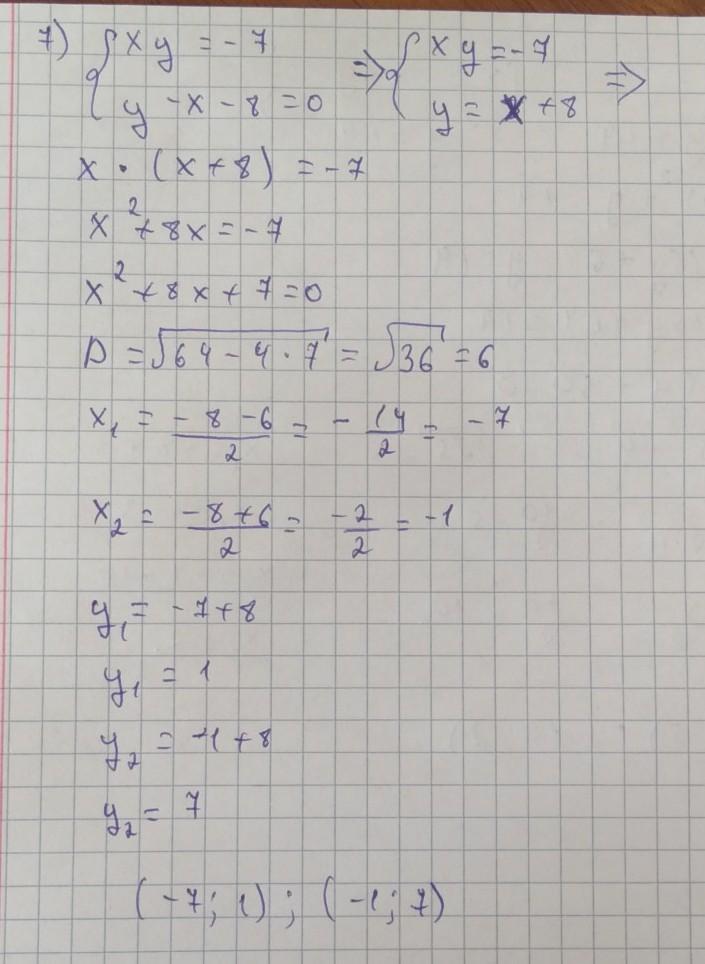 7) { xy = -7 => { xy = -7 =>
y - x - 8 = 0 y = x + 8
x · (x + 8) = -7
x² + 8x = -7
x² + 8x + 7 = 0
D = √64 - 4 · 7 = √36 = 6
x₁ = (-8 - 6)/2 = - 14/2 = -7
x₂ = (-8 + 6)/2 = -2/2 = -1
y₁ = -7 + 8
y₁ = 1
y₂ = -1 + 8
y₂ = 7
(-7; 1); (-1; 7)